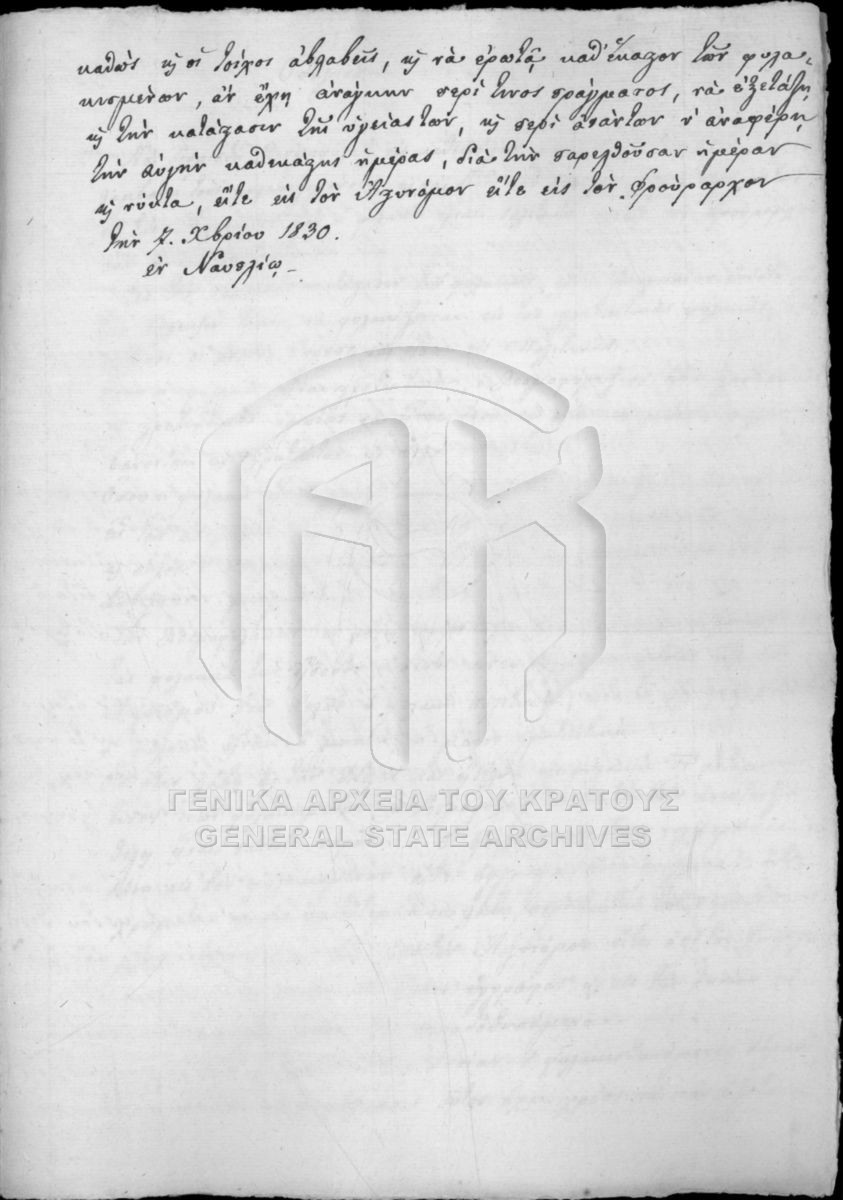 καθὼς ϗ οἱ τοίχοι ἀβλαβεῖς, ϗ νὰ ἐρωτᾷ καθ' ἕκαστον τῶν φυλα-
κισμένων, ἂν ἔχῃ ἀνάγκην περί τινος πράγματος, νὰ ἐξετάζῃ
ϗ τὴν κατάστασιν τῆς ὑγείας των, ϗ περὶ ἁπάντων ν' ἀναφέρῃ
τὴν αὐγὴν καθεκάστης ἡμέρας, διὰ τὴν παρελθοῦσαν ἡμέραν
ϗ νύκτα, εἴτε εἰς τὸν Ἀστυνόμον εἴτε εἰς τὸν Φρούραρχον
τὴν 7. Χβρίου 1830.
ἐν Ναυπλίῳ
ΓΕΝΙΚΑ ΑΡΧΕΙΑ ΤΟΥ ΚΡΑΤΟΥΣ
GENERAL STATE ARCHIVES